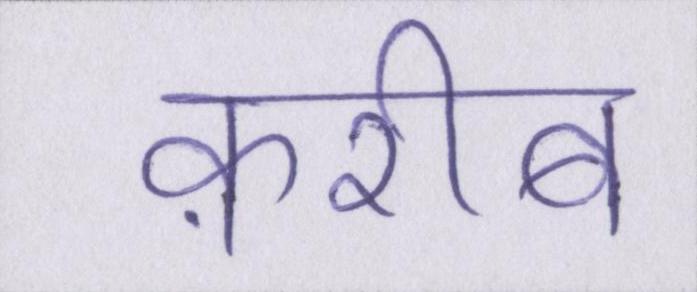 क़रीब